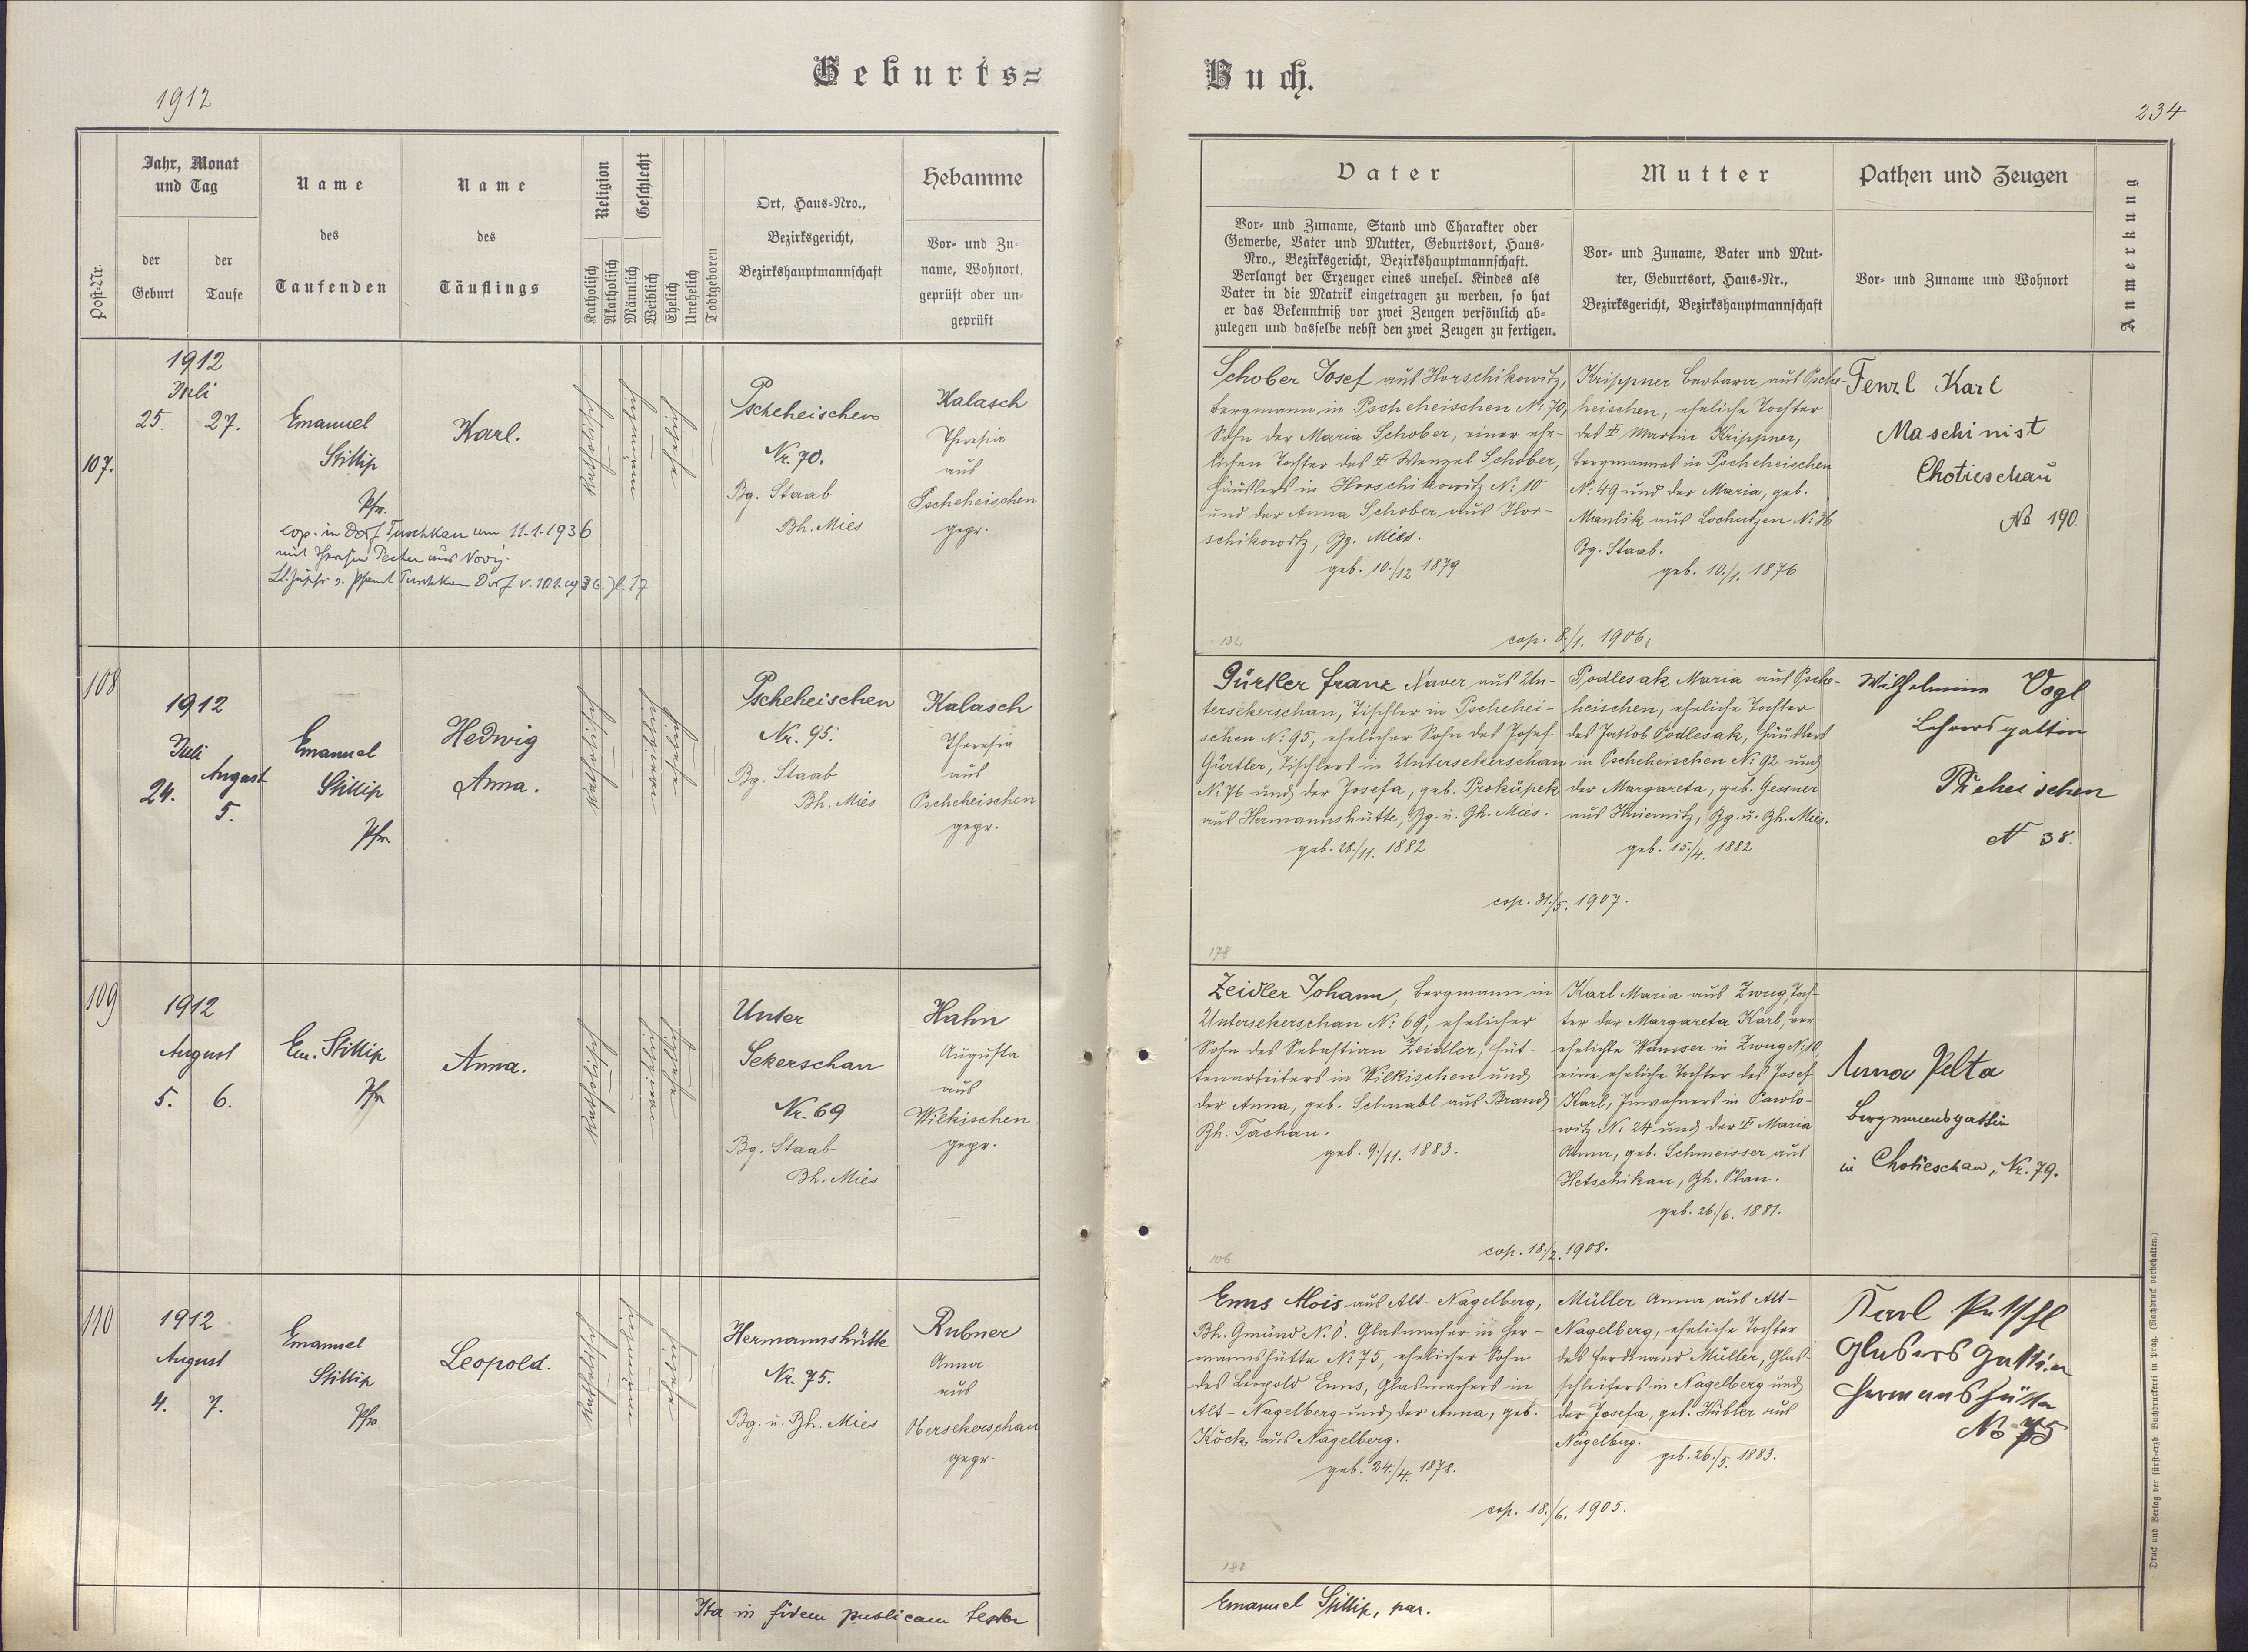 Geburts=
Buch.
1912
234
Post-Nr.
Jahr, Monat
und Tag
der
Geburt
der
Taufe
Name
des
Taufenden
Name
des
Täuflings
Religion
Katholisch
Akatholisch
Geschlecht
Männlich
Weiblich
Ehelich
Unehelich
Todtgeboren
Ort, Haus=Nro.,
Bezirksgericht,
Bezirkshauptmannschaft
Hebamme
Vor= und Zu=
name, Wohnort,
geprüft oder un=
geprüft
Vater
Vor= und Zuname, Stand und Charakter oder
Gewerbe, Vater und Mutter, Geburtsort, Haus=
Nro., Bezirksgericht, Bezirkshauptmannschaft.
Verlangt der Erzeuger eines unehel. Kindes als
Vater in die Matrik eingetragen zu werden, so hat
er das Bekenntniß vor zwei Zeugen persönlich ab=
zulegen und dasselbe nebst den zwei Zeugen zu fertigen.
Mutter
Vor= und Zuname, Vater und Mut=
ter, Geburtsort, Haus=Nr.,
Bezirksgericht, Bezirkshauptmannschaft
Pathen und Zeugen
Vor= und Zuname und Wohnort
Anmerkung
107.
1912
Juli
25. 27.
Emanuel
Stillip
Pfr.
cop. in Dorf Tuschkau am 11.1.1936
mit
Karl.
katholisch
männlich
ehelich
Pscheheischen
Nr. 70.
Bg. Staab
Bh. Mies
Kalasch
Theresia
aus
Pscheheischen
gepr.
Schober Josef aus Horschikowitz,
Bergmann in Pscheheischen No 70,
Sohn der Maria Schober, einer ehe-
lichen Tochter des † Wenzel Schober,
Häuslers in Horschikowitz No 10
und der Anna Schober aus Hor-
schikowitz, Bg. Mies.
geb. 10./12 1879
Krippner Barbara aus Psche-
heischen, eheliche Tochter
des † Martin Krippner,
Bergmannes in Pscheheischen
No 49 und der Maria, geb.
Manlik aus Lochutzen No 36
Bg. Staab.
geb. 10./1. 1876
132.
cop. 8./1. 1906.
Fenzl Karl
Maschinist
Chotieschau
No 190.
108
1912
Juli
24.
August
5.
Emanuel
Stillip
Pfr.
Hedwig
Anna.
katholisch
weiblich
ehelich
Pscheheischen
Nr. 95.
Bg. Staab
Bh. Mies
Kalasch
Theresia
aus
Pscheheischen
gepr.
Gürtler Franz Xaver aus Un-
tersekerschan, Tischler in Pschehei-
schen No 95, ehelicher Sohn des Josef
Gürtler, Tischlers in Untersekerschan
No 76 und der Josefa, geb. Prokupek
aus Hermannshütte, Bg. u. Bh. Mies.
geb. 28./11. 1882
Podlesak Maria aus Psche-
heischen, eheliche Tochter
des Jakob Podlesak, Häuslers
in Pscheheischen No 92 und
der Margareta, geb. Gessner
aus Hniemitz, Bg. u. Bh. Mies.
geb. 15./4. 1882
cop. 31./5. 1907.
178
Wilhelmine Vogl
Lehrersgattin
N 38.
109
1912
August
5. 6.
Em. Stillip
Pfr
Anna.
katholisch
weiblich
ehelich
Unter
Sekerschan
Nr. 69
Bg. Staab
Bh. Mies
Hahn
Augusta
aus
Wilkischen
gepr.
Zeidler Johann, Bergmann in
Untersekerschan No 69, ehelicher
Sohn des Sebastian Zeidler, Hüt-
tenarbeiters in Wilkischen und
der Anna, geb. Schnabl aus Brand
Bh. Tachau.
geb. 9./11. 1883.
Karl Maria aus Zwug, Toch-
ter der Margareta Karl, ver-
ehelichte Wamser in Zwug No 10,
eine eheliche Tochter des Josef
Karl, Inwohners in Pawlo-
witz No 24 und der † Maria
Anna, geb. Schmeisser aus
Hetschikau, Bh. Plan.
geb. 26./6. 1881.
cop. 18./2. 1908.
106
Anna Pelta
Bergmannsgattin
in Chotieschau, Nr. 79.
110
1912
August
4. 7.
Emanuel
Stillip
Pfr.
Leopold.
katholisch
männlich
ehelich
Hermannshütte
Nr. 75.
Bg. u. Bh. Mies
Rubner
Anna
aus
Obersekerschan
gepr.
Enns Alois aus Alt-Nagelberg,
Bh. Gmünd N. Ö. Glasmacher in Her-
mannshütte No 75, ehelicher Sohn
des Leopold Enns, Glasmachers in
Alt-Nagelberg und der Anna, geb.
Köck aus Nagelberg.
geb. 24./4. 1878.
Müller Anna aus Alt-
Nagelberg, eheliche Tochter
des Ferdinand Müller, Glas-
schleifers in Nagelberg und
der Josefa, geb. Kübler aus
Nagelberg.
geb. 26./5. 1883.
cop. 18./6. 1905.
188
Karl Putschl
Glasers Gattin
Hermanshütte
No 75
Ita in fidem publicam testor
Emanuel Stillip, par.
Druck und Verlag der fürst=erzb. Buchdruckerei in Prag. (Nachdruck vorbehalten.)